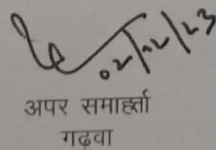 02/12/23
अपर समाहर्त्ता
गढ़वा